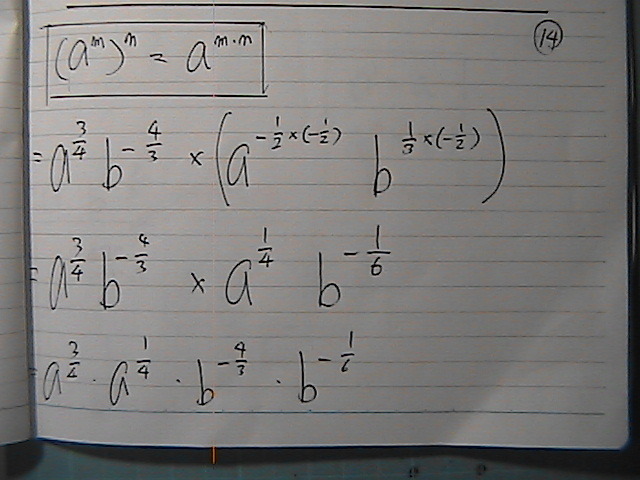 (a^m)^n = a^{m·n} ⑭
= a^{3/4} b^{-4/3} × (a^{-1/2×(-1/2)} b^{1/3×(-1/2)})
= a^{3/4} b^{-4/3} × a^{1/4} b^{-1/6}
= a^{3/4} · a^{1/4} · b^{-4/3} · b^{-1/6}